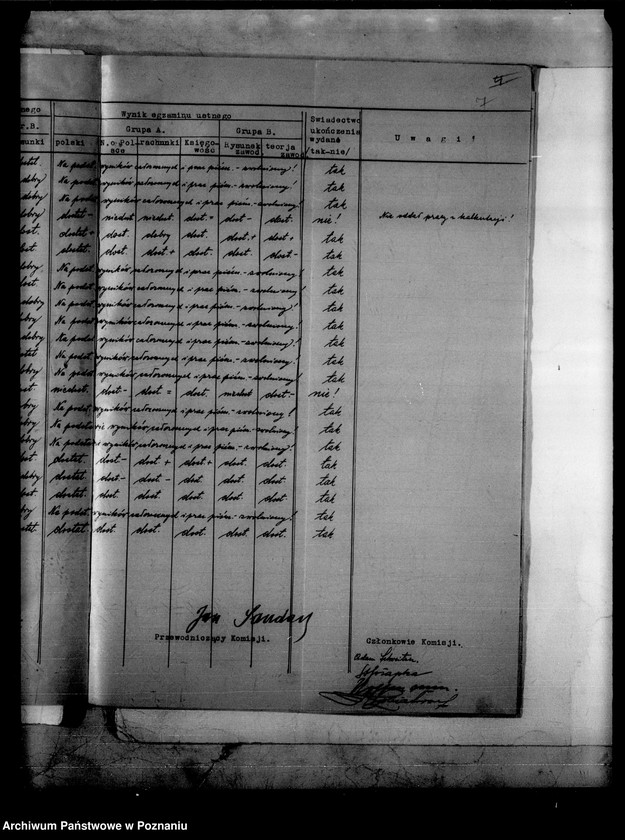 nego
Wynik egzaminu ustnego
r.B.
Grupa A.
Grupa B.
Świadectwo ukończenia wydane /tak-nie/
U w a g i !
unki
polski
N.o Polsce
rachunki
Księgowość
Rysunek zawod.
teorja zawod.
Na podst. wyników całorocznych i prac piśm. - zwolniony! tak
dobry Na podst. wyników całorocznych i prac piśm. - zwolniony! tak
dobry Na podst. wyników całorocznych i prac piśm. - zwolniony! tak
dobry dostet - niedost niedost. dost = dost - dost. nie! Nie oddał pracy z kalkulacji!
dost. dostet + dost. dobry dost. dost. + dost + tak
dostet. dost. dost + dost. dost. dost. - tak
dobry Na podst. wyników całorocznych i prac piśm. - zwolniony! tak
dost. Na podst. wyników całorocznych i prac piśm. - zwolniony! tak
dobry Na podst. wyników całorocznych i prac piśm. - zwolniony! tak
dobry Na podst. wyników całorocznych i prac piśm. - zwolniony! tak
dobry Na podst. wyników całorocznych i prac piśm. - zwolniony! tak
Na podst. wyników całorocznych i prac piśm. - zwolniony! tak
dobry Na podst. wyników całorocznych i prac piśm. - zwolniony! tak
niedost. dost - dost = dost. niedost dost. - nie!
Na podst. wyników całorocznych i prac piśm. - zwolniony! tak
Na podstawie wyników całorocznych i prac piśm. - zwolniony! tak
Na podstawie wyników całorocznych i prac piśm. - zwolniony! tak
dostet. dost - dost + dost + dost. dost. tak
dobry dostet dost - dost - dost dost. dost tak
dostet dost dost dost. dost. dost. tak
Na podst. wyników całorocznych i prac piśm. - zwolniony! tak
dostet. dost. dost. dost. dost. dost. tak
Jan
Przewodniczący Komisji.
Członkowie Komisji.
Adam
Archiwum Państwowe w Poznaniu